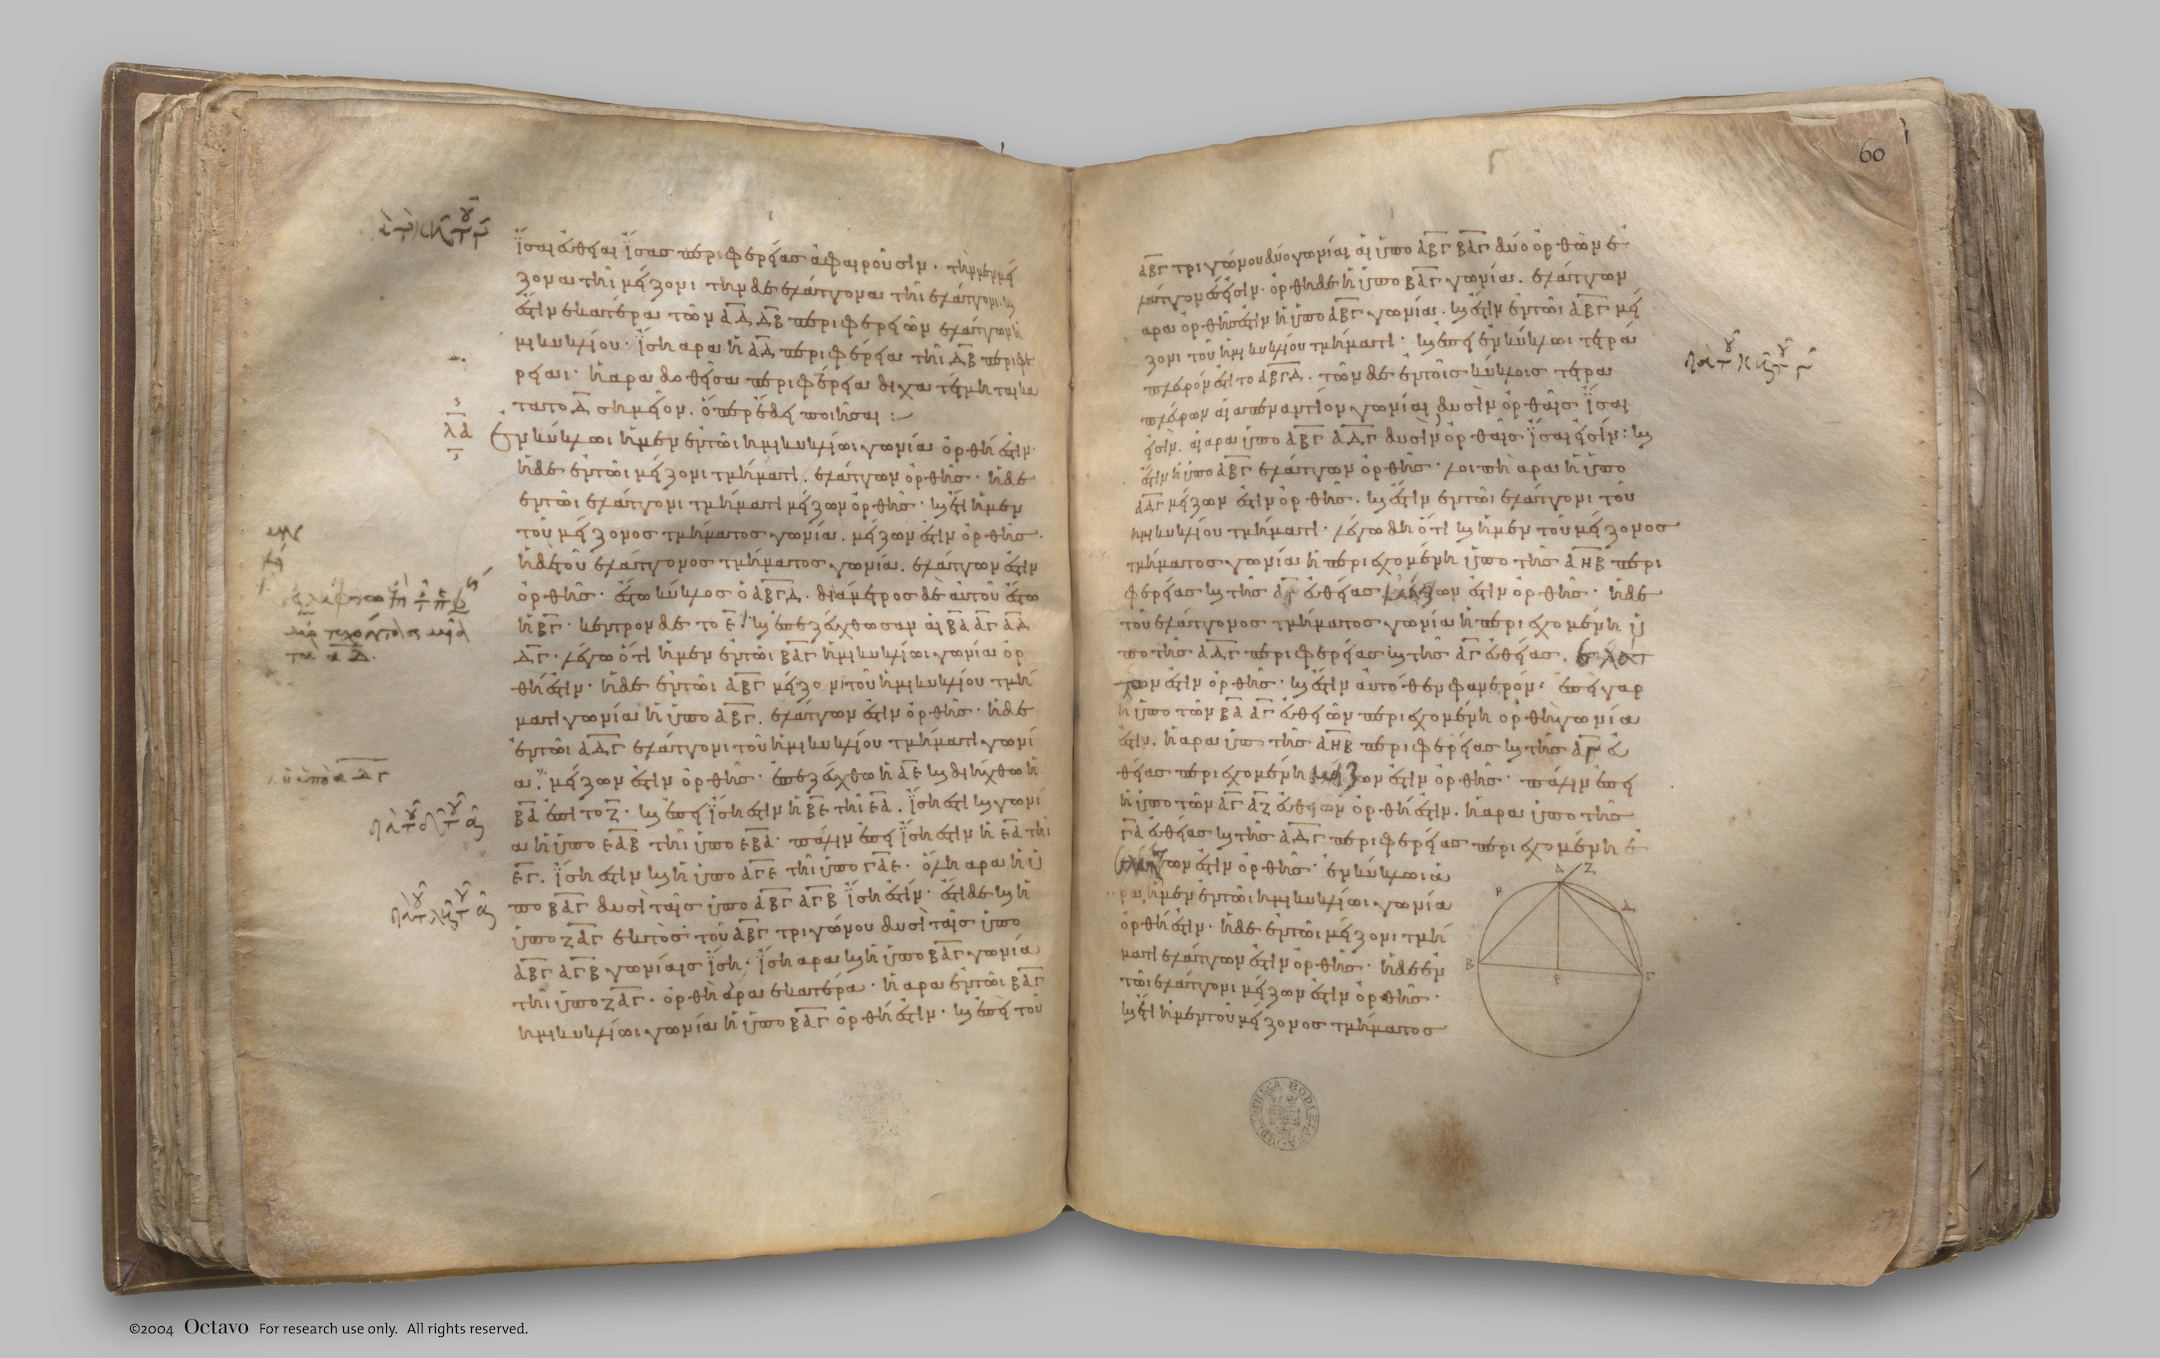 ἴσαι εὐθεῖαι ἴσας περιφερείας ἀφαιροῦσιν · τὴν μὲν μεί
ζονα τῆι μείζονι τὴν δὲ ἐλάττονα τῆι ἐλάττονι · καί
ἐστιν ἑκατέρα τῶν ΑΔ ΔΒ περιφερειῶν ἐλάττων ἡ
μικυκλίου · ἴση ἄρα ἡ ΑΔ περιφέρεια τῆι ΔΒ περιφε
ρείαι · ἡ ἄρα δοθεῖσα περιφέρεια δίχα τέτμηται κα
τὰ τὸ Δ σημεῖον. ὅπερ ἔδει ποιῆσαι :
λα
Ἐν κύκλωι ἡ μὲν ἐν τῶι ἡμικυκλίωι γωνία ὀρθή ἐστιν ·
ἡ δὲ ἐν τῶι μείζονι τμήματι . ἐλάττων ὀρθῆς · ἡ δὲ
ἐν τῶι ἐλάττονι τμήματι μείζων ὀρθῆς · καὶ ἔτι ἡ μὲν
τοῦ μείζονος τμήματος γωνία . μείζων ἐστὶν ὀρθῆς ·
ἡ δὲ τοῦ ἐλάττονος τμήματος γωνία . ἐλάττων ἐστὶν
ὀρθῆς · ἔστω κύκλος ὁ ΑΒΓΔ . διάμετρος δὲ αὐτοῦ ἔστω
ἡ ΒΓ · κέντρον δὲ τὸ Ε · καὶ ἐπεζεύχθωσαν αἱ ΒΑ ΑΓ ΑΔ
ΔΓ · λέγω ὅτι ἡ μὲν ἐν τῶι ΒΑΓ ἡμικυκλίωι γωνία ὀρ
θή ἐστιν · ἡ δὲ ἐν τῶι ΑΒΓ μείζονι τοῦ ἡμικυκλίου τμή
ματι γωνία ἡ ὑπὸ ΑΒΓ . ἐλάττων ἐστὶν ὀρθῆς · ἡ δὲ
ἐν τῶι ΑΔΓ ἐλάττονι τοῦ ἡμικυκλίου τμήματι γωνί
α . μείζων ἐστὶν ὀρθῆς · ἐπεζεύχθω ἡ ΑΕ καὶ διήχθω ἡ
ΒΑ ἐπὶ τὸ Ζ · καὶ ἐπεὶ ἴση ἐστὶν ἡ ΒΕ τῆι ΕΑ . ἴση ἐστὶ καὶ γωνί
α ἡ ὑπὸ ΕΑΒ τῆι ὑπὸ ΕΒΑ · πάλιν ἐπεὶ ἴση ἐστὶν ἡ ΕΑ τῆι
ΕΓ . ἴση ἐστὶν καὶ ἡ ὑπὸ ΑΓΕ τῆι ὑπὸ ΓΑΕ · ὅλη ἄρα ἡ ὑ
πὸ ΒΑΓ δυσὶ ταῖς ὑπὸ ΑΒΓ ΑΓΒ ἴση ἐστίν · ἔστι δὲ καὶ ἡ
ὑπὸ ΖΑΓ ἐκτὸς τοῦ ΑΒΓ τριγώνου δυσὶ ταῖς ὑπὸ
ΑΒΓ ΑΓΒ γωνίαις ἴση · ἴση ἄρα καὶ ἡ ὑπὸ ΒΑΓ γωνία
τῆι ὑπὸ ΖΑΓ · ὀρθὴ ἄρα ἑκατέρα · ἡ ἄρα ἐν τῶι ΒΑΓ
ἡμικυκλίωι γωνία ἡ ὑπὸ ΒΑΓ ὀρθή ἐστιν · καὶ ἐπεὶ τοῦ
60
ΑΒΓ τριγώνου δύο γωνίαι αἱ ὑπὸ ΑΒΓ ΒΑΓ δύο ὀρθῶν ἐ
λάττονές εἰσιν · ὀρθὴ δὲ ἡ ὑπὸ ΒΑΓ γωνία . ἐλάττων
ἄρα ὀρθῆς ἐστιν ἡ ὑπὸ ΑΒΓ γωνία . καί ἐστιν ἐν τῶι ΑΒΓ μεί
ζονι τοῦ ἡμικυκλίου τμήματι · καὶ ἐπεὶ ἐν κύκλωι τετρά
πλευρόν ἐστι τὸ ΑΒΓΔ . τῶν δὲ ἐν τοῖς κύκλοις τετρα
πλεύρων αἱ ἀπεναντίον γωνίαι δυσὶν ὀρθαῖς ἴσαι
εἰσίν . αἱ ἄρα ὑπὸ ΑΒΓ ΑΔΓ δυσὶν ὀρθαῖς ἴσαι εἰσίν : καί
ἐστιν ἡ ὑπὸ ΑΒΓ ἐλάττων ὀρθῆς · λοιπὴ ἄρα ἡ ὑπὸ
ΑΔΓ μείζων ἐστὶν ὀρθῆς . καί ἐστιν ἐν τῶι ἐλάττονι τοῦ
ἡμικυκλίου τμήματι · λέγω δὴ ὅτι καὶ ἡ μὲν τοῦ μείζονος
τμήματος γωνία ἡ περιεχομένη ὑπὸ τῆς ΑΗΒ περι
φερείας καὶ τῆς ΑΓ εὐθείας μείζων ἐστὶν ὀρθῆς · ἡ δὲ
τοῦ ἐλάττονος τμήματος γωνία ἡ περιεχομένη ὑ
πὸ τῆς ΑΔΓ περιφερείας καὶ τῆς ΑΓ εὐθείας . ἐλάτ
των ἐστὶν ὀρθῆς · καί ἐστιν αὐτόθεν φανερόν · ἐπεὶ γὰρ
ἡ ὑπὸ τῶν ΒΑ ΑΓ εὐθειῶν περιεχομένη ὀρθὴ γωνία
ἐστιν . ἡ ἄρα ὑπὸ τῆς ΑΗΒ περιφερείας καὶ τῆς ΑΓ εὐ
θείας περιεχομένη μείζων ἐστὶν ὀρθῆς · πάλιν ἐπεὶ
ἡ ὑπὸ τῶν ΑΓ ΑΖ εὐθειῶν ὀρθή ἐστιν . ἡ ἄρα ὑπὸ τῆς
ΓΑ εὐθείας καὶ τῆς ΑΔΓ περιφερείας περιεχομένη ἐ
λάττων ἐστὶν ὀρθῆς · ἐν κύκλωι ἄ
ρα ἡ μὲν ἐν τῶι ἡμικυκλίωι γωνία
ὀρθή ἐστιν · ἡ δὲ ἐν τῶι μείζονι τμή
ματι ἐλάττων ἐστὶν ὀρθῆς · ἡ δὲ ἐν
τῶι ἐλάττονι μείζων ἐστὶν ὀρθῆς ·
καὶ ἔτι ἡ μὲν τοῦ μείζονος τμήματος
Α Ζ
Η Δ
Β Ε Γ
©2004 Octavo For research use only. All rights reserved.